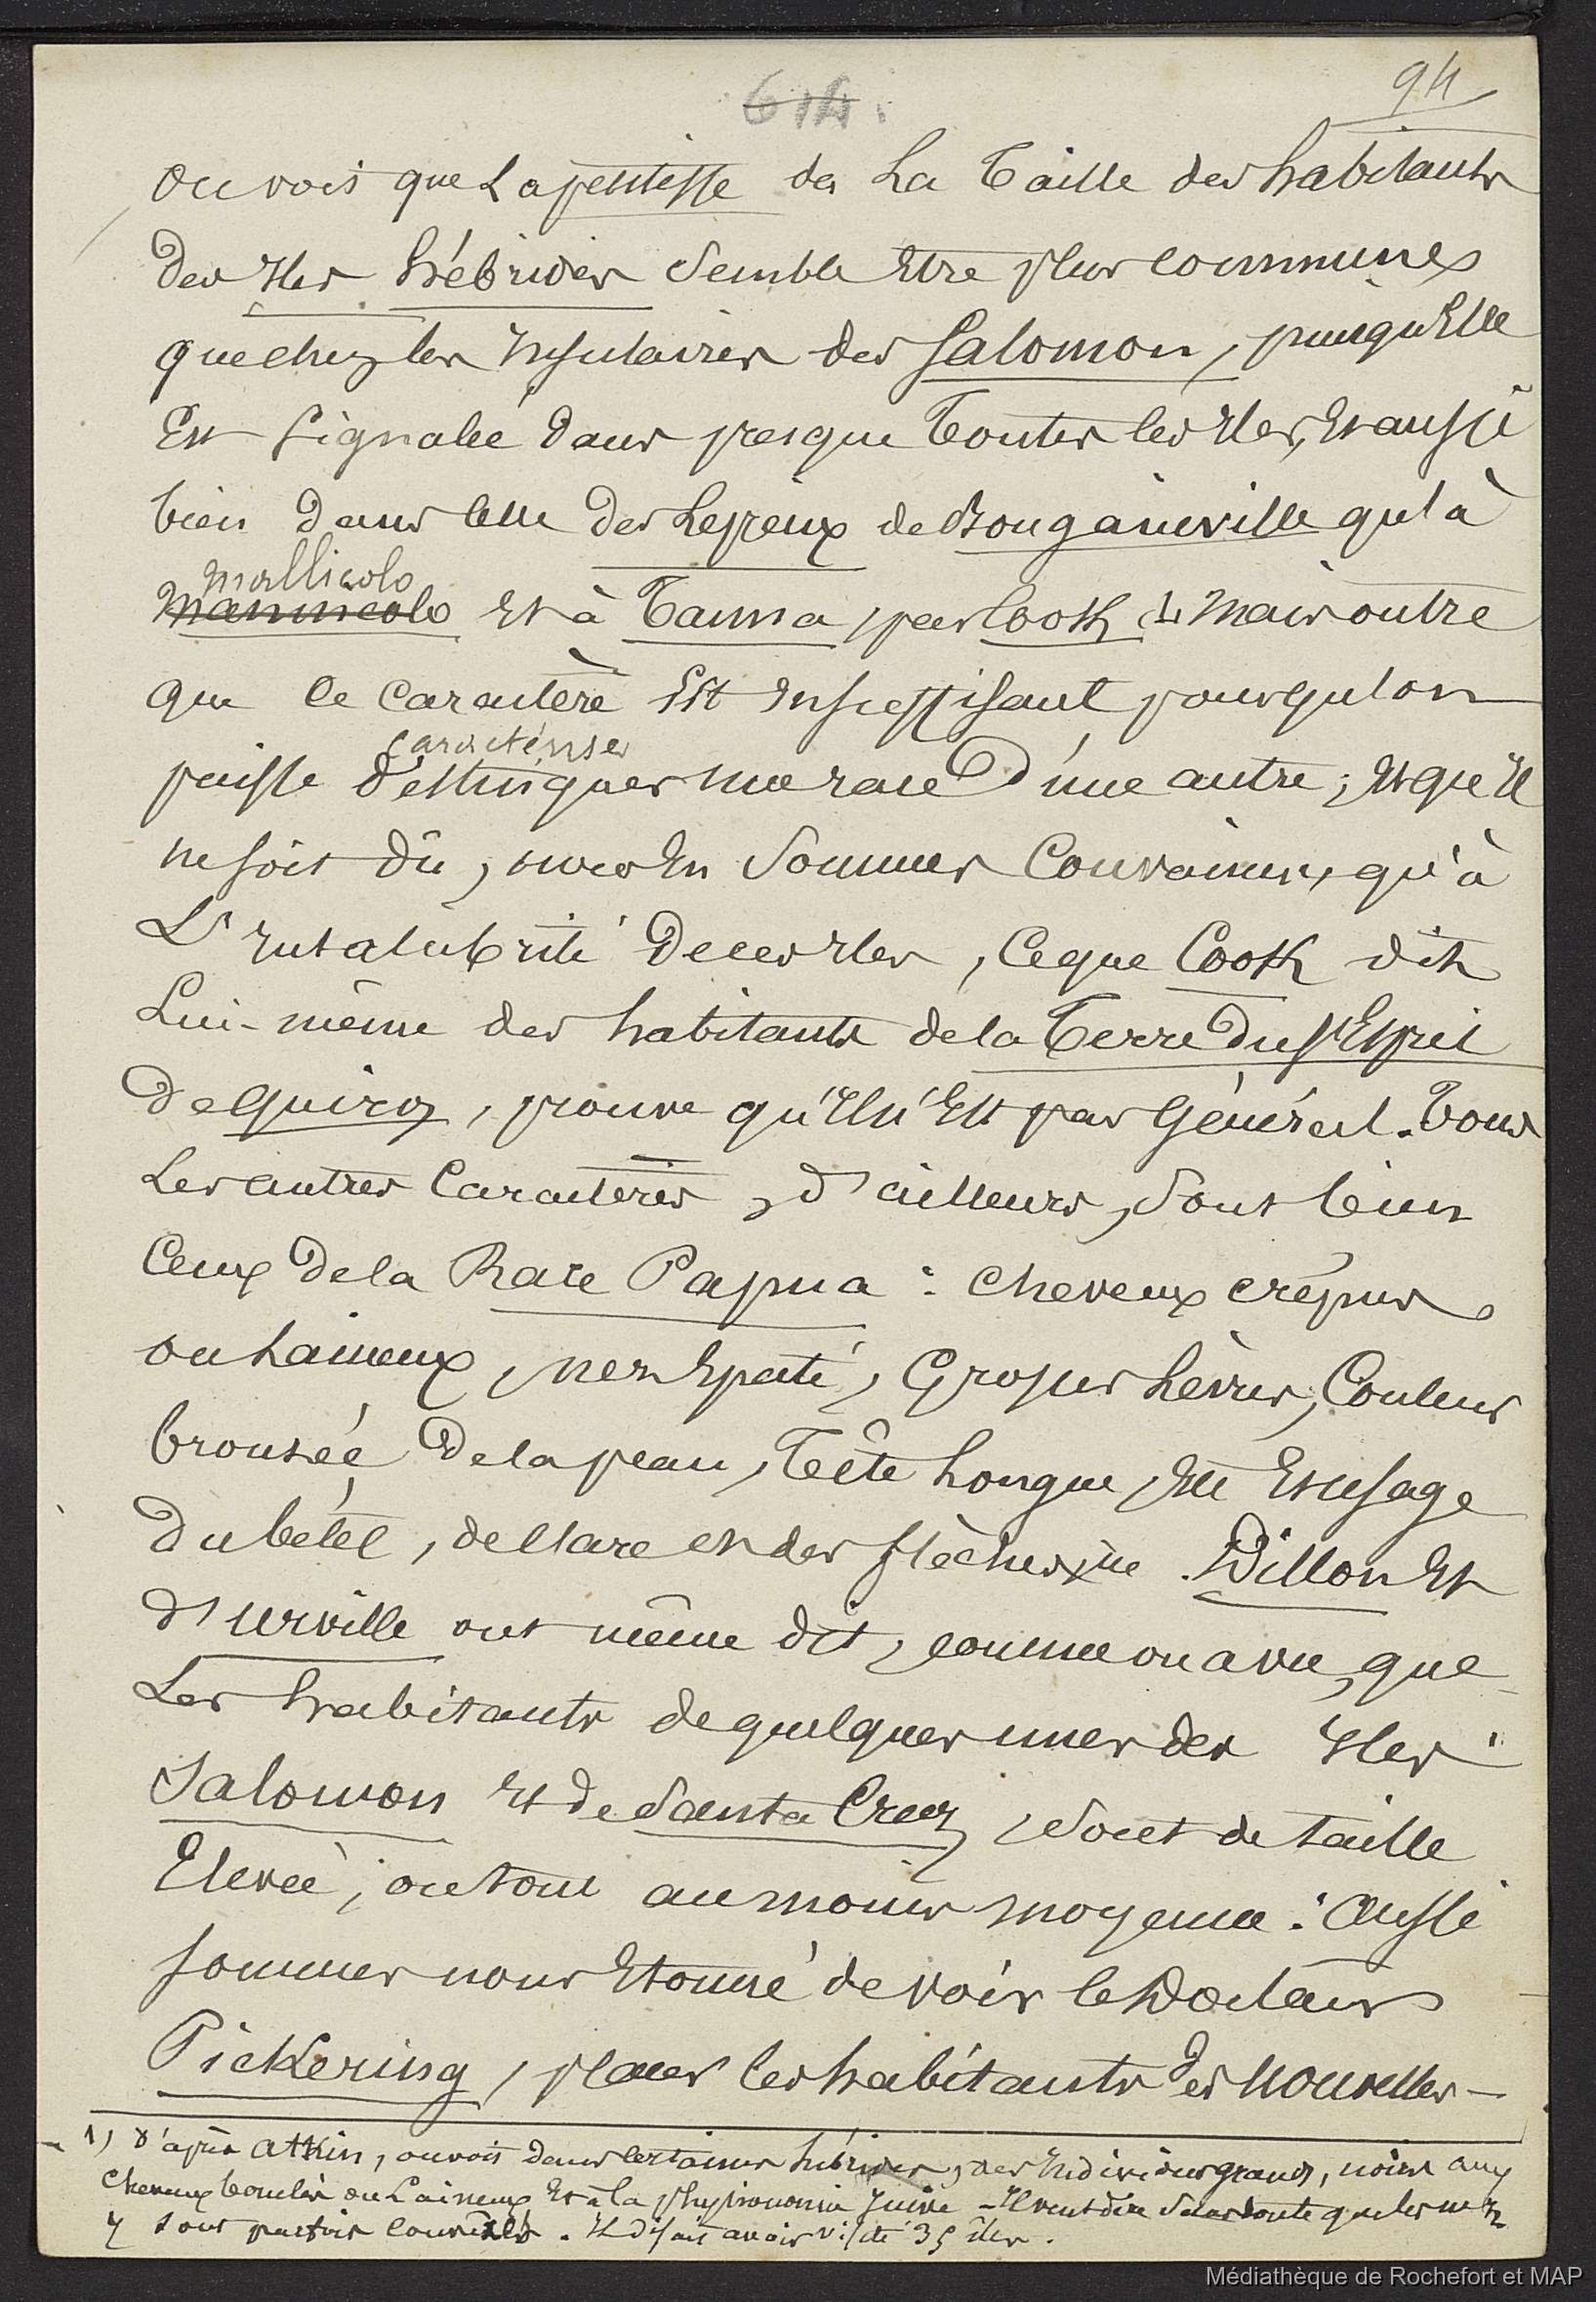 614.
94
on voit que La petitesse de La Taille des habitants
des Iles hébrides Semble Etre plus communes
que chez les Insulaires des Salomon, puisqu'Elle
Est Signalée dans presque Toutes les Iles, Et aussi
bien dans celle des Lepreux de Bougainville qu'à
Mallicolo
Mannicolo Et à Tanna, par Cook (1 mais outre
que ce caractère Est Insuffisant pour qu'on
caractériser
puisse distinguer une race d'une autre; Et qu'il
ne soit dû, nous En Sommes Convaincus, qu'à
L'Insalubrité de ces Iles, Ce que Cook dit
Lui-même des habitants de la Terre du St Esprit
de Quiroz, prouve qu'Il n'Est pas Général. Tous
Les autres Caractères, d'ailleurs, Sont bien
Ceux de la Race Papua : cheveux crépus
ou Laineux, nez Epaté, Grosses Lèvres, Couleur
bronzée de la peau, Tête Longue, Etc Et usage
du bétel, de l'arc et des flèches, etc. Dillon Et
d'Urville ont même dit, comme on a vu, que
Les habitants de quelques unes des Iles
Salomon Et de Santa Cruz, Sont de taille
Elevée, ou tout au moins moyenne : aussi
sommes nous Etonné de voir le Docteur
Pickering, placer les habitants des Nouvelles-
1) D'après Atkin, on voit dans certaines hébrides, des Individus grands, noirs aux
cheveux bouclés ou Laineux Et à la physionomie Juive - Il veut dire sans doute que les nez
y sont parfois Il disait avoir visité 35 îles.